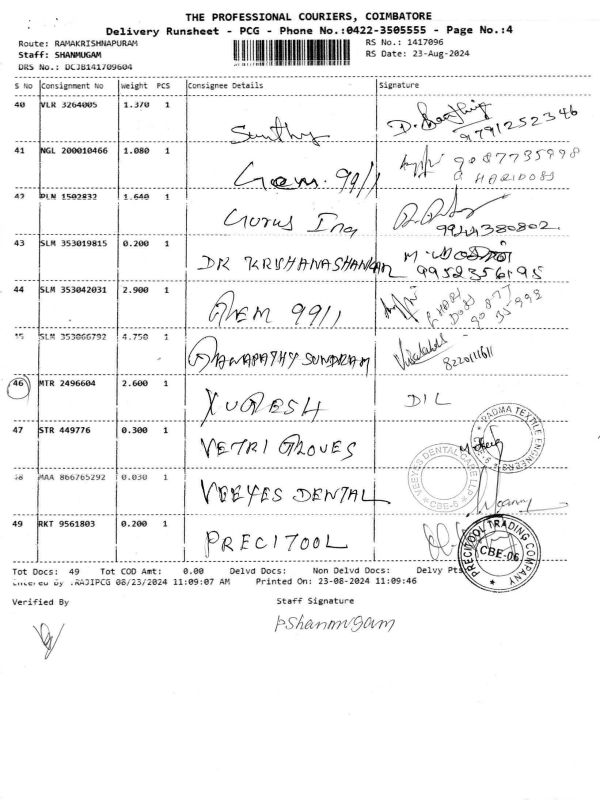 THE PROFESSIONAL COURIERS, COIMBATORE
Delivery Runsheet - PCG - Phone No.:0422-3505555 - Page No.:4
Route: RAMAKRISHNAPURAM
RS No.: 1417096
Staff: SHANMUGAM
RS Date: 23-Aug-2024
DRS No.: DCJB141709604
S No Consignment No Weight PCS Consignee Details Signature
40 VLR 3264005 1.370 1
9791252346
41 NGL 200010466 1.080 1 Gem. 99/1
9087735998
HARIDOSS
42 PLN 1502832 1.640 1
9944380802.
43 SLM 353019815 0.200 1 DR KRISHANASHANKAR
9952356195
44 SLM 353042031 2.900 1 GEM 99/1
HARI
DOSS
45 SLM 353066792 4.750 1 GANAPATHY SUNDRAM
8220111611
46 MTR 2496604 2.600 1 YUGESH DIL
47 STR 449776 0.300 1 VETRI GLOVES
RADMA TEXTILE ENGINEERS
48 MAA 866765292 0.030 1 VEEYES DENTAL
VEEYES DENTAL CARE LLP
CBE-6
49 RKT 9561803 0.200 1 PRECITOOL
PRECITOOL TRADING COMPANY
CBE-06
Tot Docs: 49 Tot COD Amt: 0.00 Delvd Docs: Non Delvd Docs: Delvy Pts
Entered By :RAJIPCG 08/23/2024 11:09:07 AM Printed On: 23-08-2024 11:09:46
Verified By Staff Signature
PShanmugam